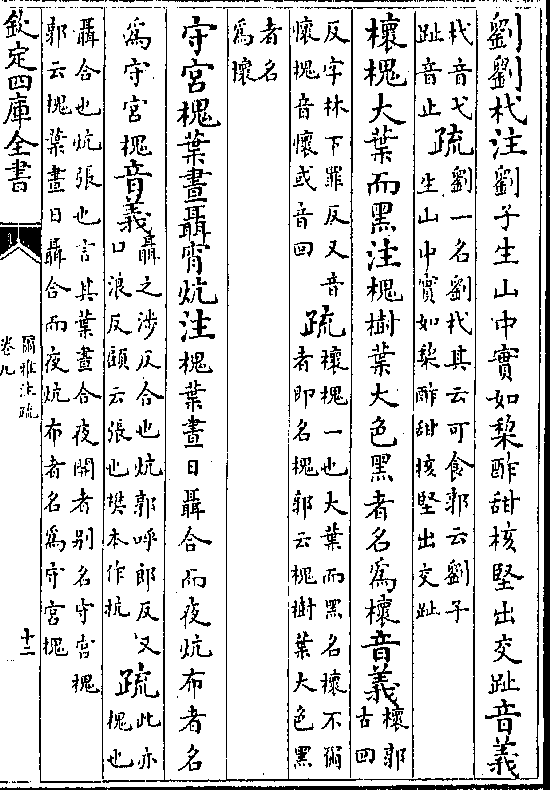 劉劉杙注劉子生山中實如棃酢甜核堅出交趾音義
杙音弋
趾音止
疏
劉一名劉杙其云可食郭云劉子
生山中實如棃酢甜核堅出交趾
櫰槐大葉而黑注槐樹葉大色黑者名為櫰音義
櫰郭
古回
反字林下罪反又音
懷槐音懷或音回
疏
櫰槐一也大葉而黑名櫰不爾
者即名槐郭云槐樹葉大色黑
者名
為櫰
守宮槐葉晝聶宵炕注槐葉晝日聶合而夜炕布者名
為守宮槐音義
聶之涉反合也炕郭呼郎反又
口浪反顧云張也樊本作抗
疏
此亦
槐也
聶合也炕張也言其葉晝合夜開者别名守宮槐
郭云槐葉晝日聶合而夜炕布者名為守宮槐
欽定四庫全書
爾雅注疏
卷九
十二